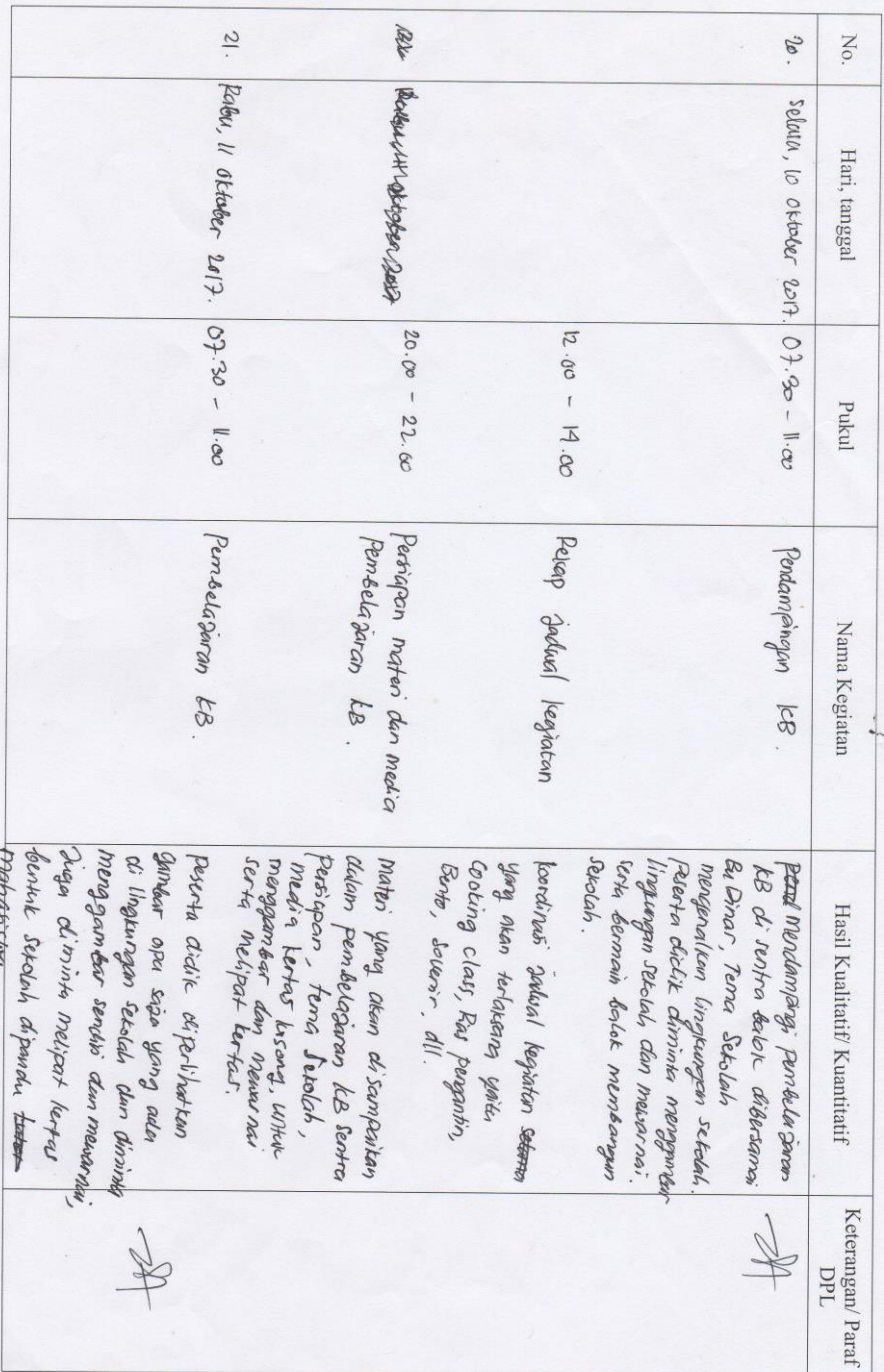 No.
Hari, tanggal
Pukul
Nama Kegiatan
Hasil Kualitatif/ Kuantitatif
Keterangan/ Paraf
DPL
20.
Selasa, 10 Oktober 2017.
07.30 - 11.00
Pendampingan KB.
Mendampingi pembelajaran
KB di sentra balok dibersamai
Bu Dinar, Tema Sekolah
mengenalkan lingkungan sekolah.
Peserta didik diminta menggambar
lingkungan sekolah dan mewarnai.
serta bermain balok membangun
sekolah.
12.00 - 14.00
Rekap jadwal kegiatan
Koordinasi jadwal kegiatan
yang akan terlaksana yaitu
Cooking class, Rias pengantin,
Bento, Souvenir, dll.
20.00 - 22.00
Persiapan materi dan media
pembelajaran KB.
Materi yang akan disampaikan
dalam pembelajaran KB Sentra
persiapan, tema Sekolah,
media kertas kosong, untuk
menggambar dan mewarnai
serta melipat kertas.
21.
Rabu, 11 Oktober 2017.
07.30 - 11.00
Pembelajaran KB.
Peserta didik diperlihatkan
gambar apa saja yang ada
di lingkungan sekolah dan diminta
menggambar sendiri dan mewarnai,
juga diminta melipat kertas
bentuk sekolah dipandu
mahasiswa